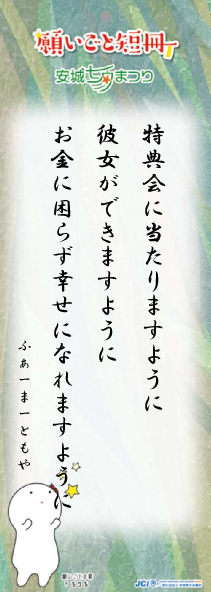 願いごと短冊
安城七夕まつり
特典会に当たりますように
彼女ができますように
お金に困らず幸せになれますように
ふぁーまーともや
JCI